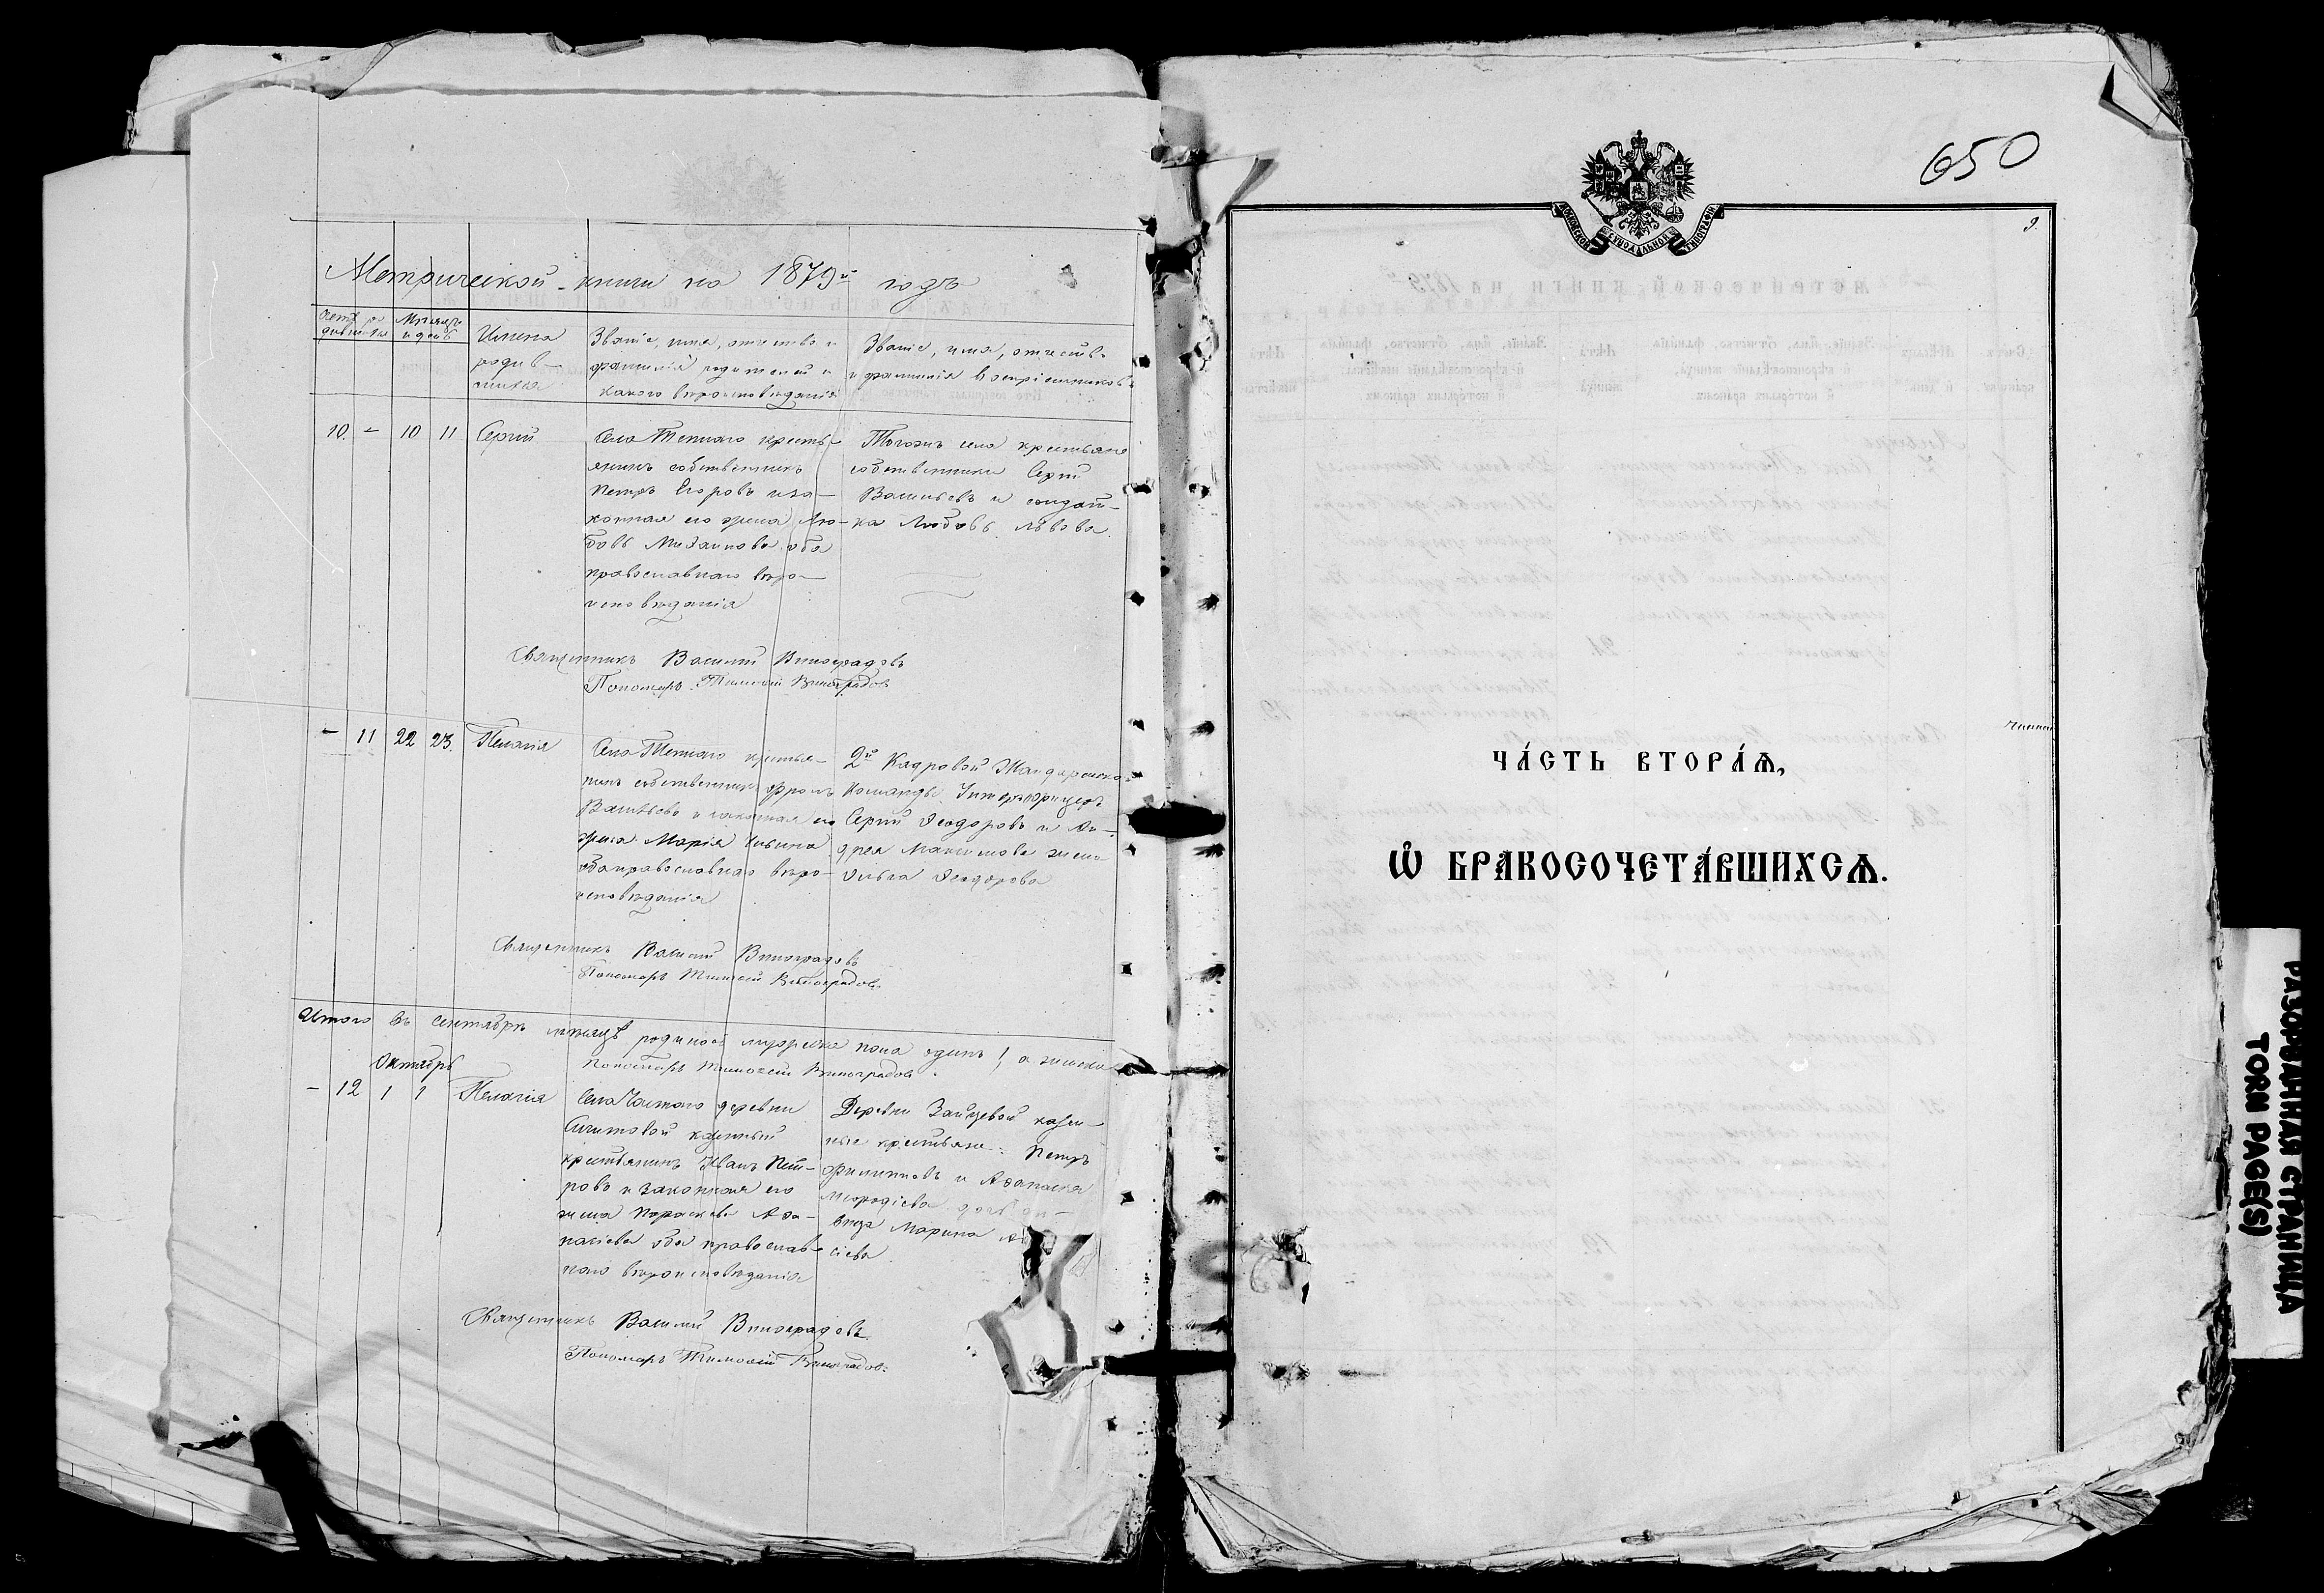 Метрической книги на 1879й годъ
Счетъ ро
дившихся
Мѣсяцъ
и день
Имена
родив-
шихся
Званіе, имя, отчество и
фамилія родителей и
какого вѣроисповѣданія
Званіе, имя, отчество
и фамилія воспріемниковъ
10. - 10 11 Сергій
Села Теплаго кресть-
янинъ собственникъ
Петръ Егоровъ и за-
конная его жена Лю-
бовь Михайлова оба
православнаго вѣро-
исповѣданія
Тогожъ села крестьяне
собственники Сергій
Васильевъ и солдат-
ка Любовь Львова.
Священникъ Василій Виноградовъ
Пономарь Тимоѳей Виноградовъ
- 11 22 23. Пелагія
Села Теплаго крестья-
нинъ собственникъ Фролъ
Васильевъ и законная его
жена Марія
оба православнаго вѣро-
исповѣданія
2й Кадровой Жандармской
Команды Унтеръ Офицеръ
Сергій Ѳеодоровъ и Ан-
дрея Максимова жена
Ольга Ѳеодорова
Священникъ Василій Виноградовъ
Пономарь Тимоѳей Виноградовъ.
Итого въ сентябрѣ мѣсяцѣ родилось мужеска пола одинъ 1, а женска
Пономарь Тимоѳей Виноградовъ.
Октябрь
- 12 1 1 Пелагія
Села деревни
казенный
крестьянинъ Иванъ Пет-
ровъ и законная его
жена Параскева Аѳа-
насіева оба православ-
наго вѣроисповѣданія
Деревни Зайцевой казен-
ные крестьяне: Петръ
Филипповъ и Аѳанасія
дочь дѣ-
вица Марина
сіева
Священникъ Василій Виноградовъ.
Пономарь Тимоѳей Виноградовъ.
650
МОСКОВСКОЙ СѴНОДАЛЬНОЙ ТИПОГРАФІИ
9.
ЧА́СТЬ ВТОРА́Ѧ,
Ѽ БРАКОСОЧЕТА́ВШИХСѦ.
РАЗОРВАННАЯ СТРАНИЦА
TORN PAGE(S)